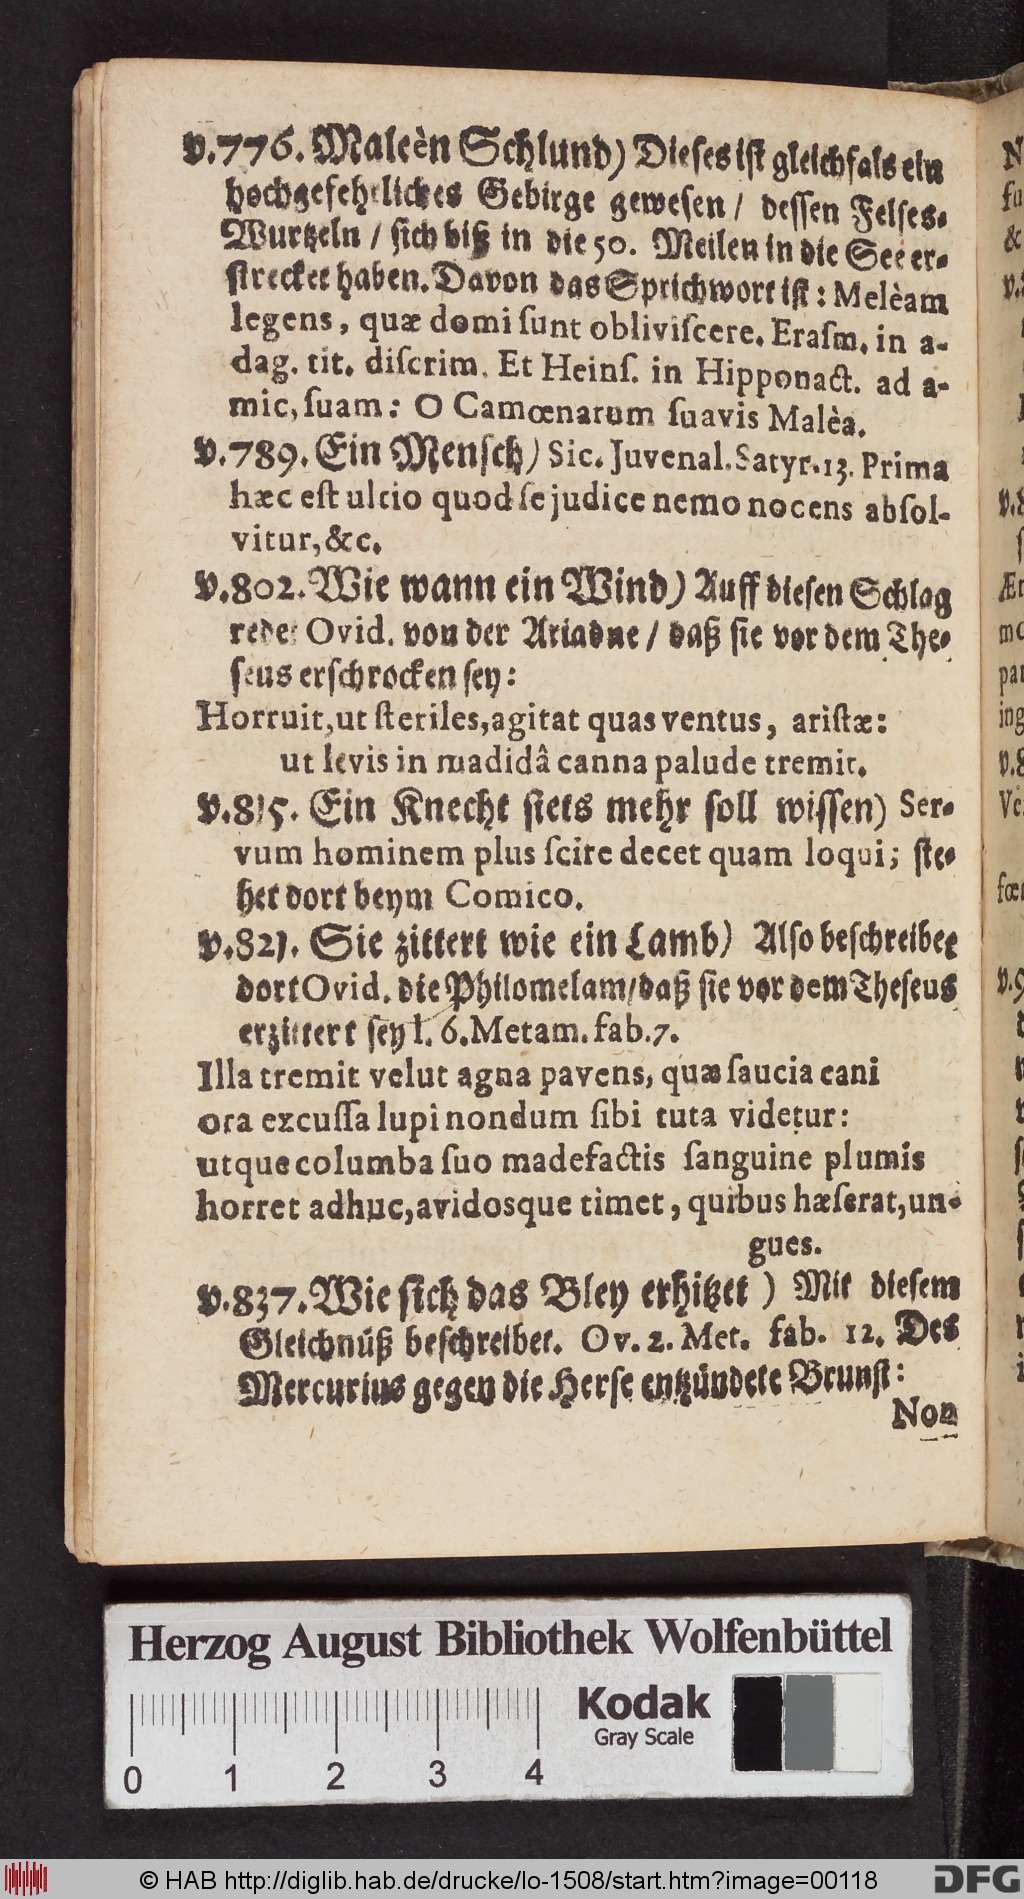 v.776. Maleèn Schlund) Dieses ist gleichfals ein
hochgefehrliches Gebirge gewesen / dessen Felses-
Wurtzeln / sich biß in die 50. Meilen in die See er-
strecket haben. Davon das Sprichwort ist: Melèam
legens, quæ domi sunt obliviscere. Erasm. in a-
dag. tit. discrim. Et Heins. in Hipponact. ad a-
mic, suam: O Camœnarum suavis Malèa.
v.789. Ein Mensch) Sic. Juvenal. Satyr. 13. Prima
hæc est ultio quod se judice nemo nocens absol-
vitur, &c.
v.802. Wie wann ein Wind) Auff diesen Schlag
redet Ovid. von der Ariadne / daß sie vor dem The-
seus erschrocken sey:
Horruit, ut steriles, agitat quas ventus, aristæ:
ut levis in madidâ canna palude tremit.
v.815. Ein Knecht stets mehr soll wissen) Ser-
vum hominem plus scire decet quam loqui; ste-
het dort beym Comico.
v.821. Sie zittert wie ein Lamb) Also beschreibet
dort Ovid. die Philomelam / daß sie vor dem Theseus
erzittert sey l. 6. Metam. fab. 7.
Illa tremit velut agna pavens, quæ saucia cani
ora excussa lupi nondum sibi tuta videtur:
utque columba suo madefactis sanguine plumis
horret adhuc, avidosque timet, quibus hæserat, un-
gues.
v.837. Wie sich das Bley erhitzet) Mit diesem
Gleichnüß beschreibet. Ov. 2. Met. fab. 12. Des
Mercurius gegen die Herse entzündete Brunst:
Non
Herzog August Bibliothek Wolfenbüttel
Kodak
Gray Scale
0 1 2 3 4
© HAB http://diglib.hab.de/drucke/lo-1508/start.htm?image=00118
DFG